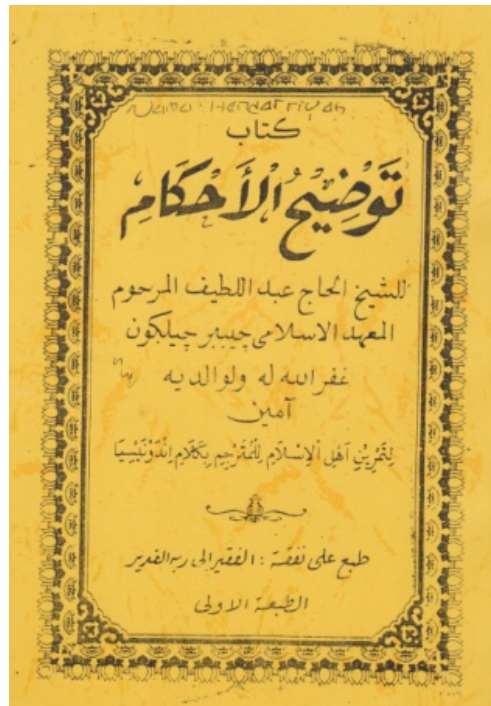 كتاب
تَوْضِيْحُ الْأَحْكَامِ
للشيخ الحاج عبد اللطيف المرحوم
المعهد الاسلامى چيبير چيلكون
غفر الله له ولوالديه
آمين
لِتَمْرِيْنِ اَهْلِ الْاِسْلَامِ لِلْمُتَرْجِمِ بِكَلَامِ اِنْدَوْنِيْسِيَا
طبع على نفقة : الفقير الى ربه القدير
الطبعة الاولى